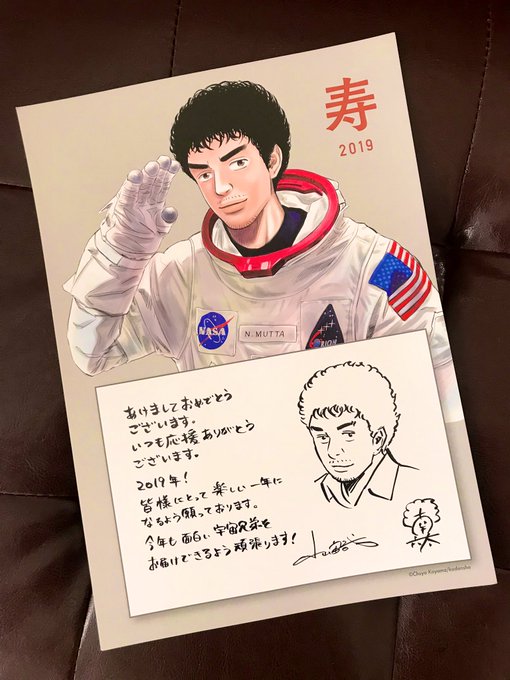 寿
2019
NASA
N. MUTTA
ORION
あけましておめでとう
ございます。
いつも応援ありがとう
ございます。
2019年!
皆様にとって楽しい一年に
なるよう願っております。
今年も面白い宇宙兄弟を
お届けできるよう頑張ります!
©Chuya Koyama/kodansha